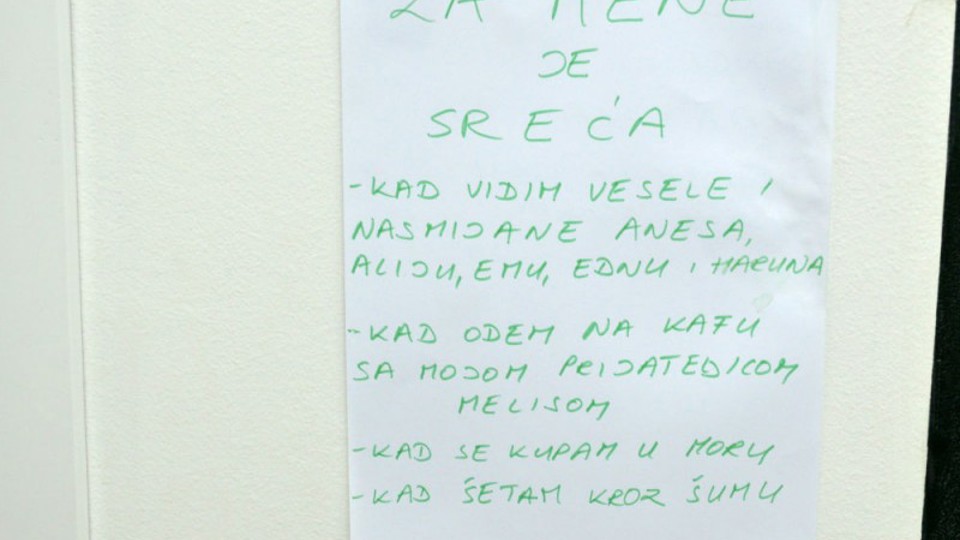 ZA MENE
JE
SREĆA
-KAD VIDIM VESELE I
NASMIJANE ANESA,
ALIJU, EMU, EDNU I HARUNA
-KAD ODEM NA KAFU
SA MOJOM PRIJATELJICOM
MELISOM
-KAD SE KUPAM U MORU
-KAD ŠETAM KROZ ŠUMU